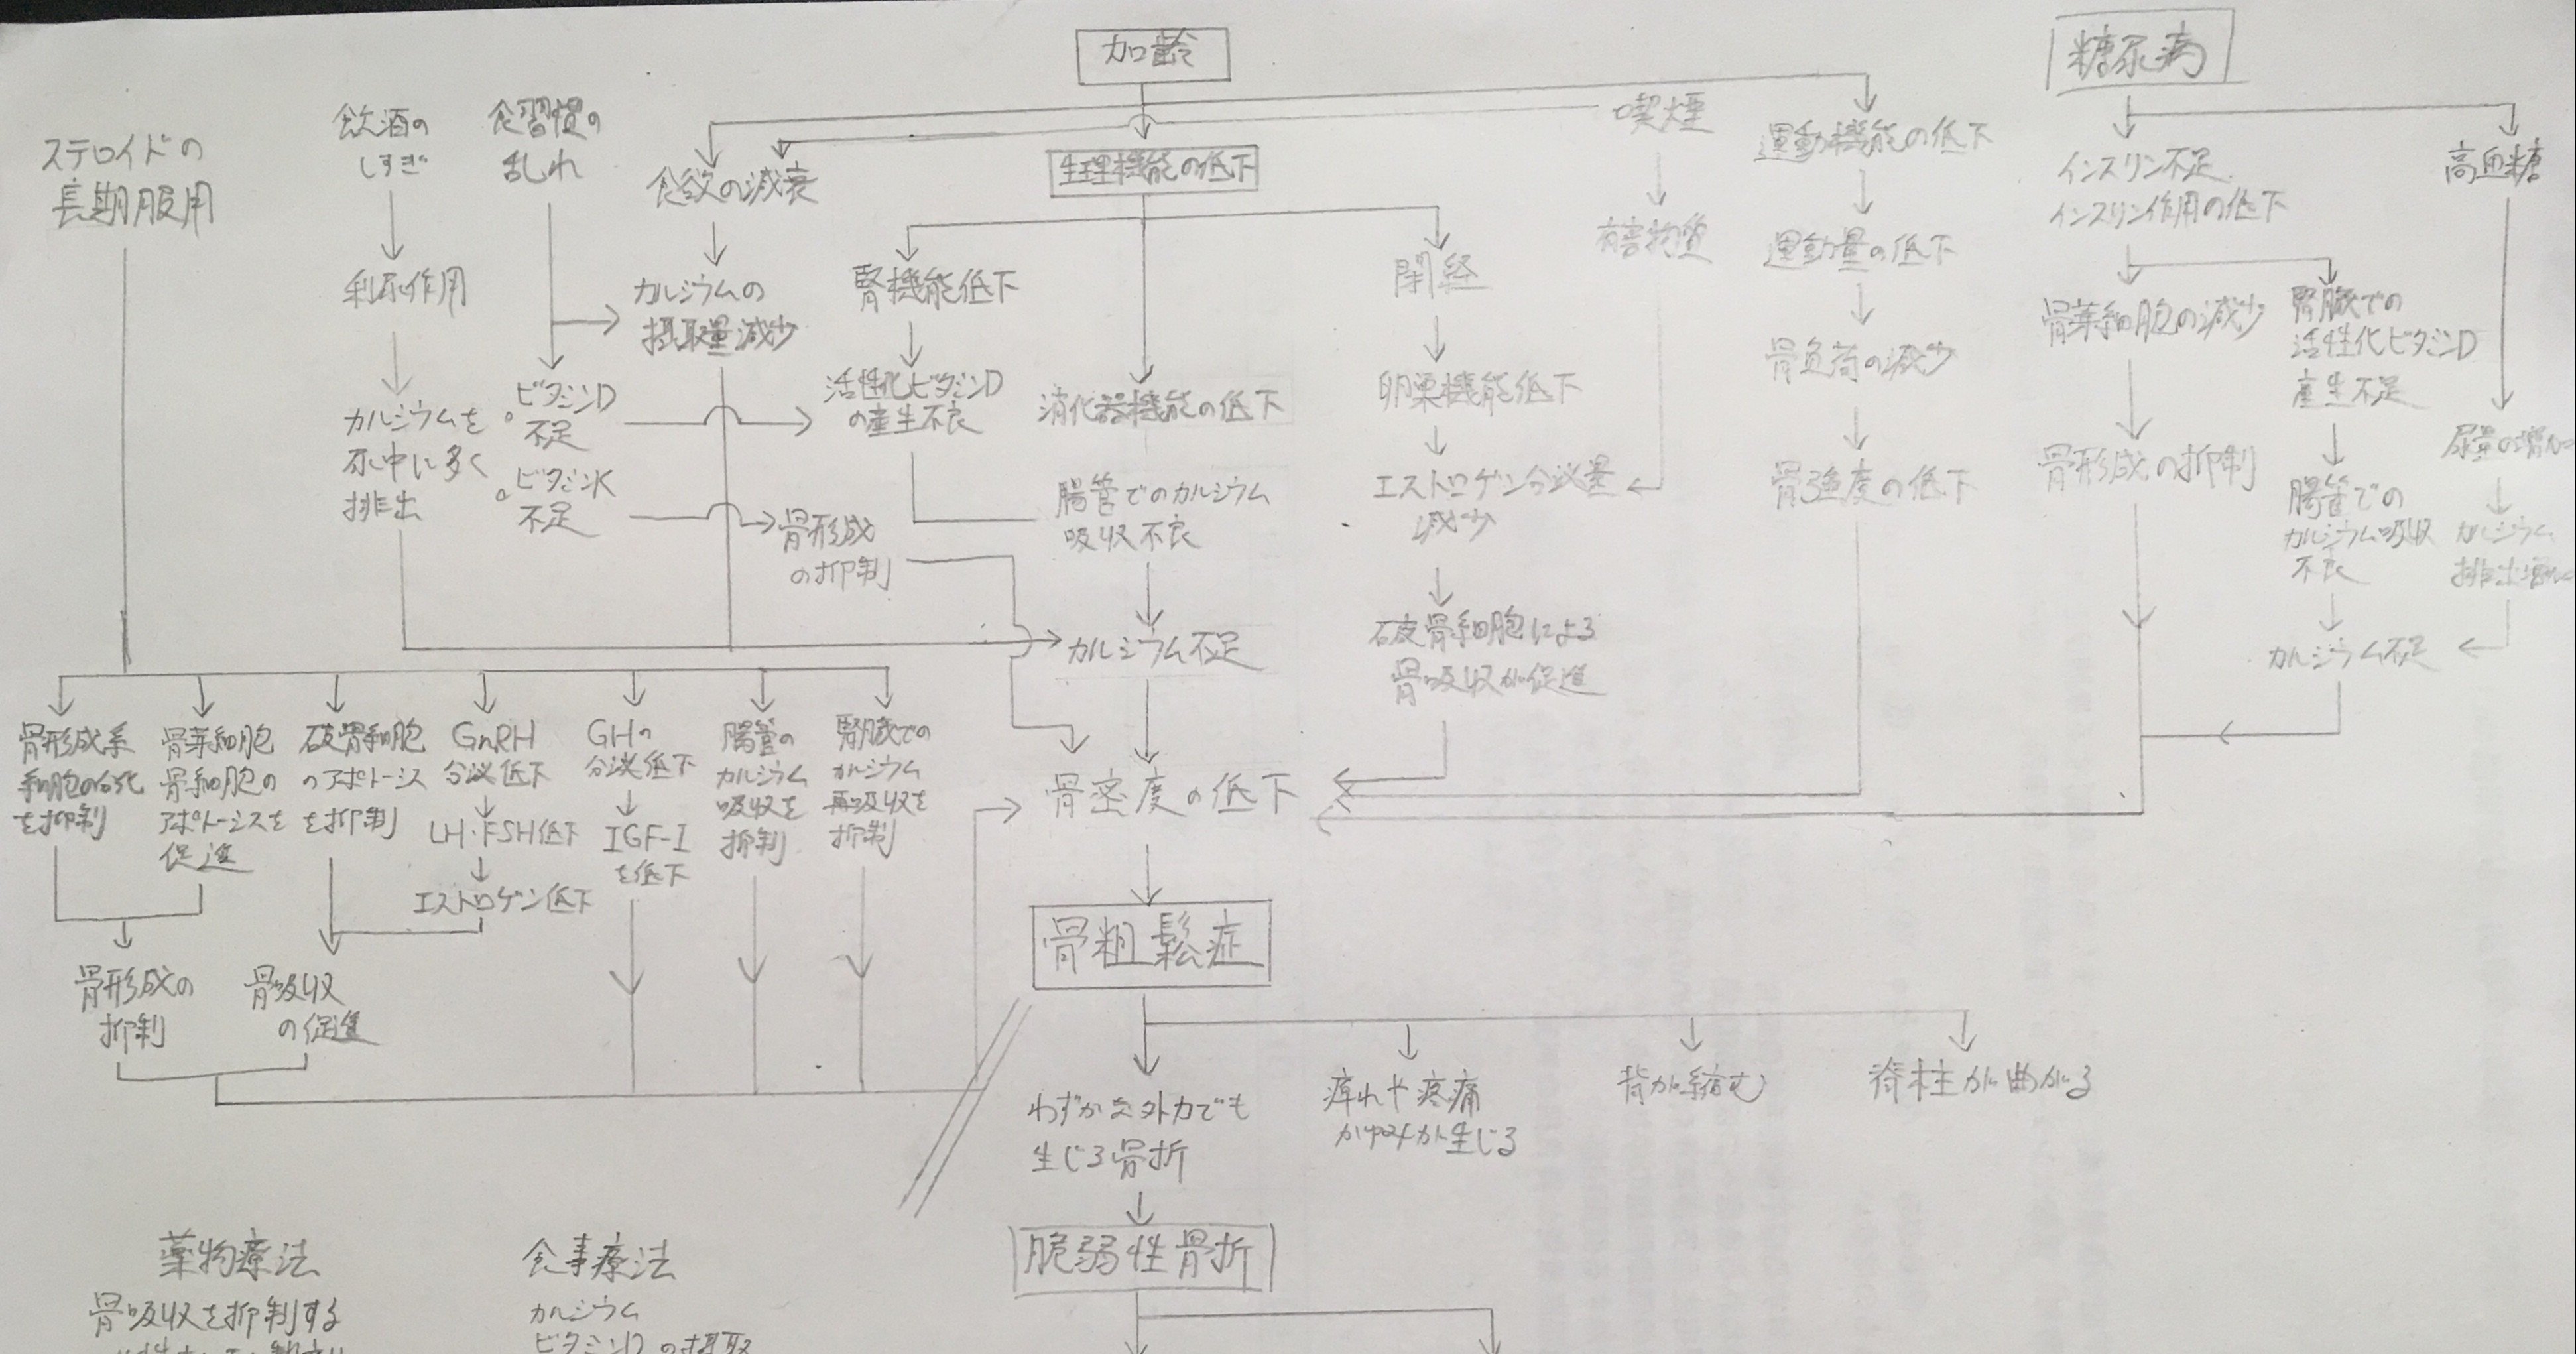 加齢
糖尿病
ステロイドの
長期服用
飲酒の
しすぎ
食習慣の
乱れ
食欲の減衰
生理機能の低下
喫煙
運動機能の低下
インスリン不足
インスリン作用の低下
高血糖
利尿作用
カルシウムの
摂取量減少
腎機能低下
閉経
有害物質
運動量の低下
骨芽細胞の減少
腎臓での
活性化ビタミンD
産生不足
カルシウムを
尿中に多く
排出
ビタミンD
不足
ビタミンK
不足
活性化ビタミンD
の産生不良
消化器機能の低下
卵巣機能低下
骨負荷の減少
骨形成
の抑制
腸管でのカルシウム
吸収不良
エストロゲン分泌量
減少
骨強度の低下
骨形成の抑制
腸管での
カルシウム吸収
不良
尿量の増加
カルシウム
排出増加
カルシウム不足
破骨細胞による
骨吸収が促進
カルシウム不足
骨形成系
細胞の分化
を抑制
骨芽細胞
骨細胞の
アポトーシスを
促進
破骨細胞
のアポトーシス
を抑制
GnRH
分泌低下
LH・FSH低下
エストロゲン低下
GHの
分泌低下
IGF-I
を低下
腸管の
カルシウム
吸収を
抑制
腎臓での
カルシウム
再吸収を
抑制
骨密度の低下
骨粗鬆症
骨形成の
抑制
骨吸収
の促進
わずかな外力でも
生じる骨折
痺れや疼痛
かゆみが生じる
背が縮む
脊柱が曲がる
脆弱性骨折
薬物療法
骨吸収を抑制する
食事療法
カルシウム
ビタミンDの摂取